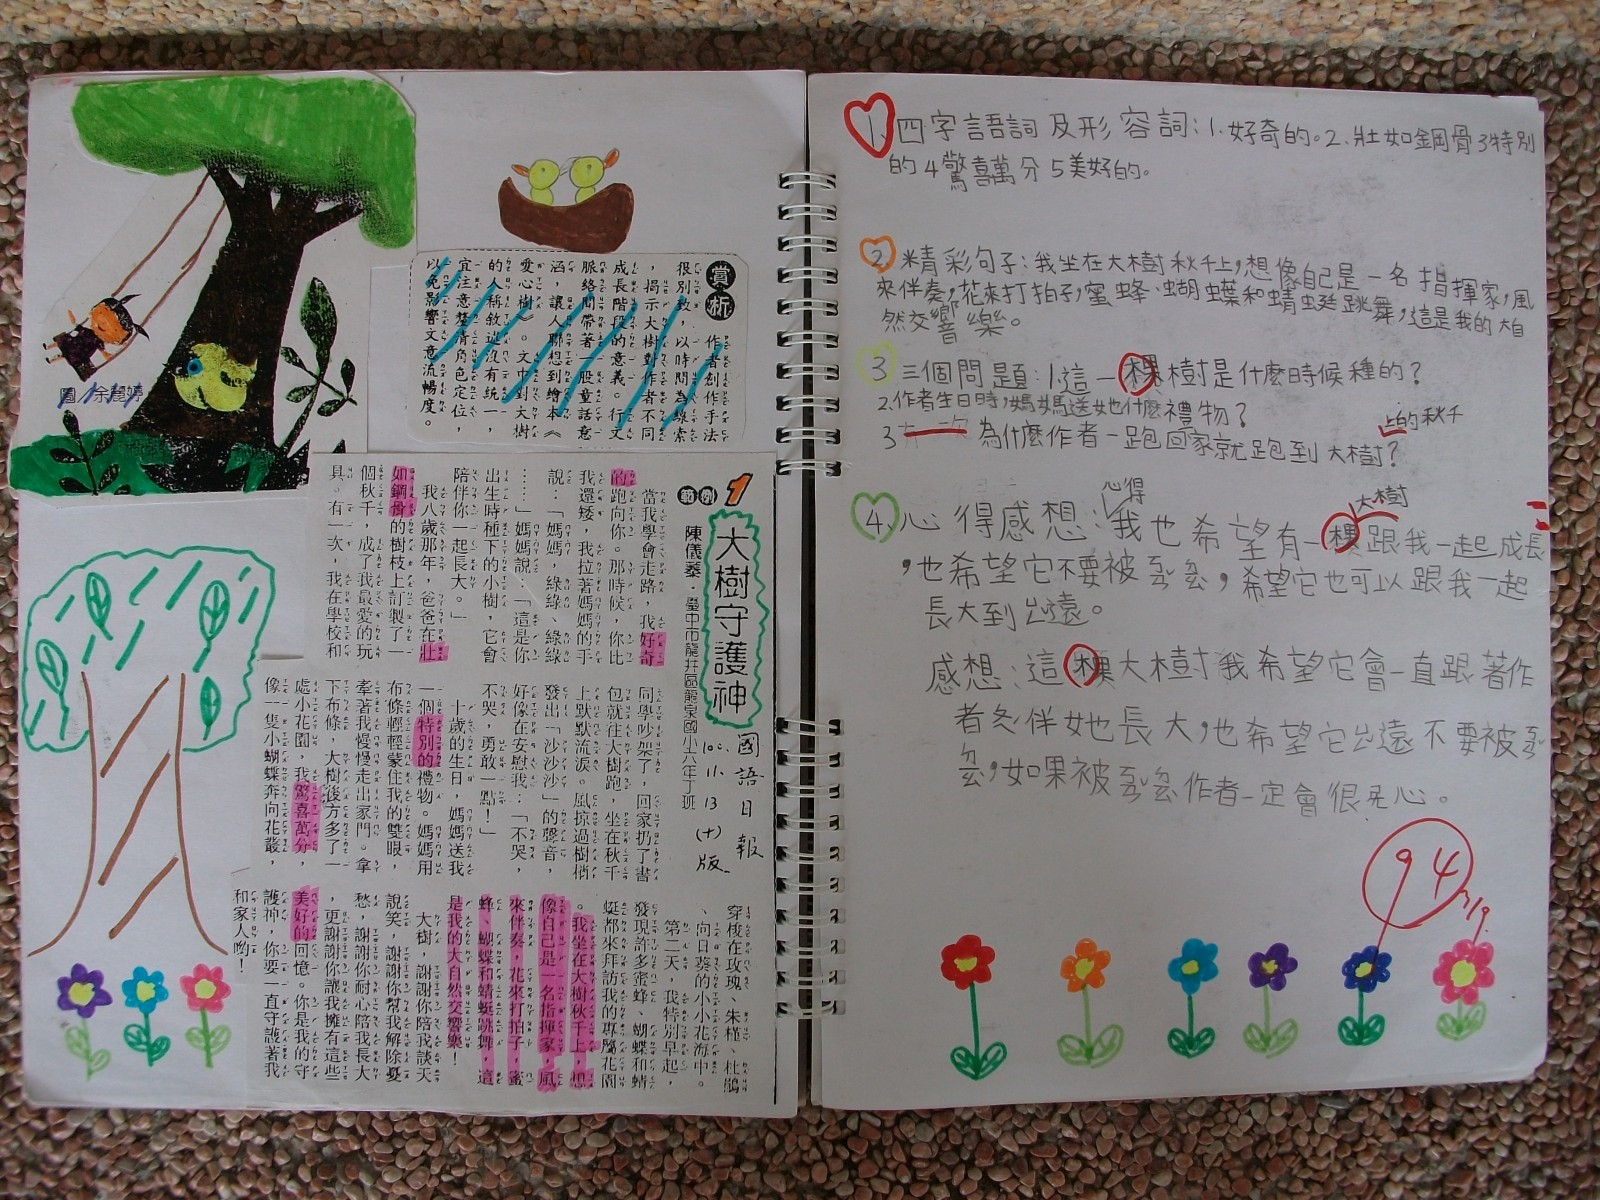 圖/余麗婷
賞析
作者創作手法
很別致，以時間為線索
，揭示大樹對作者不同
成長階段的意義。行文
脈絡間帶著一股童話意
涵，讓人聯想到繪本《
愛心樹》。文中對大樹
的人稱敘述沒有統一，
宜注意釐清角色定位，
以免影響文意流暢度。
範例1
大樹守護神
陳儀蓁．臺中市龍井區龍泉國小六年丁班
國語日報
100.11.13(十)版
當我學會走路，我好奇
的跑向你。那時候，你比
我還矮，我拉著媽媽的手
說：「媽媽，綠綠、綠綠
……」媽媽說：「這是你
出生時種下的小樹，它會
陪伴你一起長大。」
我八歲那年，爸爸在壯
如鋼骨的樹枝上訂製了一
個秋千，成了我最愛的玩
具。有一次，我在學校和
同學吵架了，回家扔了書
包就往大樹跑，坐在秋千
上默默流淚。風掠過樹梢
發出「沙沙沙」的聲音，
好像在安慰我：「不哭，
不哭，勇敢一點！」
十歲的生日，媽媽送我
一個特別的禮物。媽媽用
布條輕輕蒙住我的雙眼，
牽著我慢慢走出家門。拿
下布條，大樹後方多了一
處小花園，我驚喜萬分，
像一隻小蝴蝶奔向花叢，
穿梭在玫瑰、朱槿、杜鵑
、向日葵的小小花海中。
第二天，我特別早起，
發現許多蜜蜂、蝴蝶和蜻
蜓都來拜訪我的專屬花園
。我坐在大樹秋千上，想
像自己是一名指揮家，風
來伴奏，花來打拍子，蜜
蜂、蝴蝶和蜻蜓跳舞，這
是我的大自然交響樂！
大樹，謝謝你陪我談天
說笑，謝謝你幫我解除憂
愁，謝謝你耐心陪我長大
，更謝謝你讓我擁有這些
美好的回憶。你是我的守
護神，你要一直守護著我
和家人喲！
1.四字語詞及形容詞：1.好奇的。2.壯如鋼骨3特別
的4驚喜萬分5美好的。
2.精彩句子：我坐在大樹秋千上，想像自己是一名指揮家，風
來伴奏，花來打拍子，蜜蜂、蝴蝶和蜻蜓跳舞，這是我的大自
然交響樂。
3三個問題：1.這一棵樹是什麼時候種的？
2.作者生日時，媽媽送她什麼禮物？
上的秋千
3為什麼作者一跑回家就跑到大樹？
心得
大樹
4.心得感想：我也希望有一棵跟我一起成長
，也希望它不要被ㄎㄢˇㄉㄠˇ，希望它也可以跟我一起
長大到永遠。
感想：這棵大樹我希望它會一直跟著作
者陪伴她長大，也希望它永遠不要被
，如果被作者一定會很
心。
94